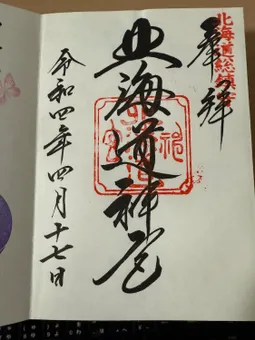 北海道総鎮守
奉拝
北海道神宮
令和四年四月十七日